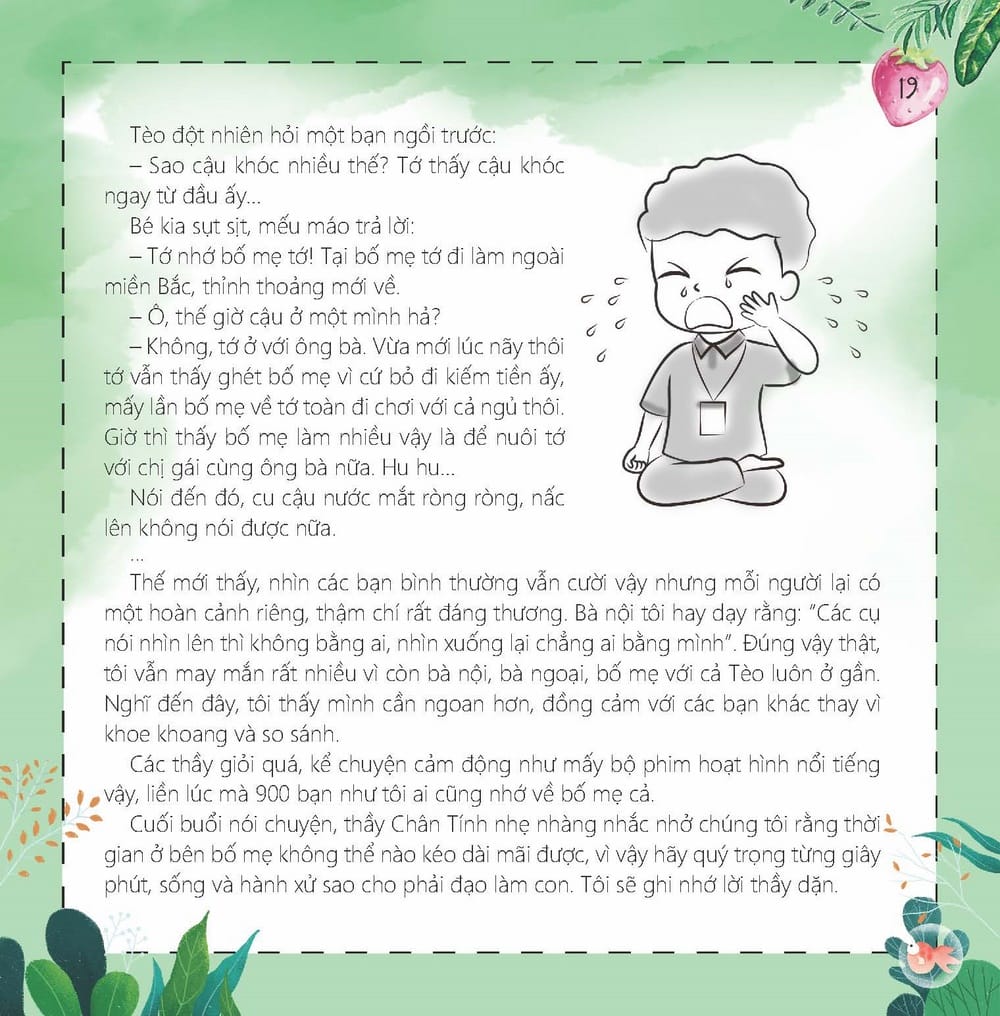 19
Tèo đột nhiên hỏi một bạn ngồi trước:
– Sao cậu khóc nhiều thế? Tớ thấy cậu khóc
ngay từ đầu ấy...
Bé kia sụt sịt, mếu máo trả lời:
– Tớ nhớ bố mẹ tớ! Tại bố mẹ tớ đi làm ngoài
miền Bắc, thỉnh thoảng mới về.
– Ô, thế giờ cậu ở một mình hả?
– Không, tớ ở với ông bà. Vừa mới lúc nãy thôi
tớ vẫn thấy ghét bố mẹ vì cứ bỏ đi kiếm tiền ấy,
mấy lần bố mẹ về tớ toàn đi chơi với cả ngủ thôi.
Giờ thì thấy bố mẹ làm nhiều vậy là để nuôi tớ
với chị gái cùng ông bà nữa. Hu hu...
Nói đến đó, cu cậu nước mắt ròng ròng, nấc
lên không nói được nữa.
...
Thế mới thấy, nhìn các bạn bình thường vẫn cười vậy nhưng mỗi người lại có
một hoàn cảnh riêng, thậm chí rất đáng thương. Bà nội tôi hay dạy rằng: “Các cụ
nói nhìn lên thì không bằng ai, nhìn xuống lại chẳng ai bằng mình”. Đúng vậy thật,
tôi vẫn may mắn rất nhiều vì còn bà nội, bà ngoại, bố mẹ với cả Tèo luôn ở gần.
Nghĩ đến đây, tôi thấy mình cần ngoan hơn, đồng cảm với các bạn khác thay vì
khoe khoang và so sánh.
Các thầy giỏi quá, kể chuyện cảm động như mấy bộ phim hoạt hình nổi tiếng
vậy, liền lúc mà 900 bạn như tôi ai cũng nhớ về bố mẹ cả.
Cuối buổi nói chuyện, thầy Chân Tính nhẹ nhàng nhắc nhở chúng tôi rằng thời
gian ở bên bố mẹ không thể nào kéo dài mãi được, vì vậy hãy quý trọng từng giây
phút, sống và hành xử sao cho phải đạo làm con. Tôi sẽ ghi nhớ lời thầy dặn.